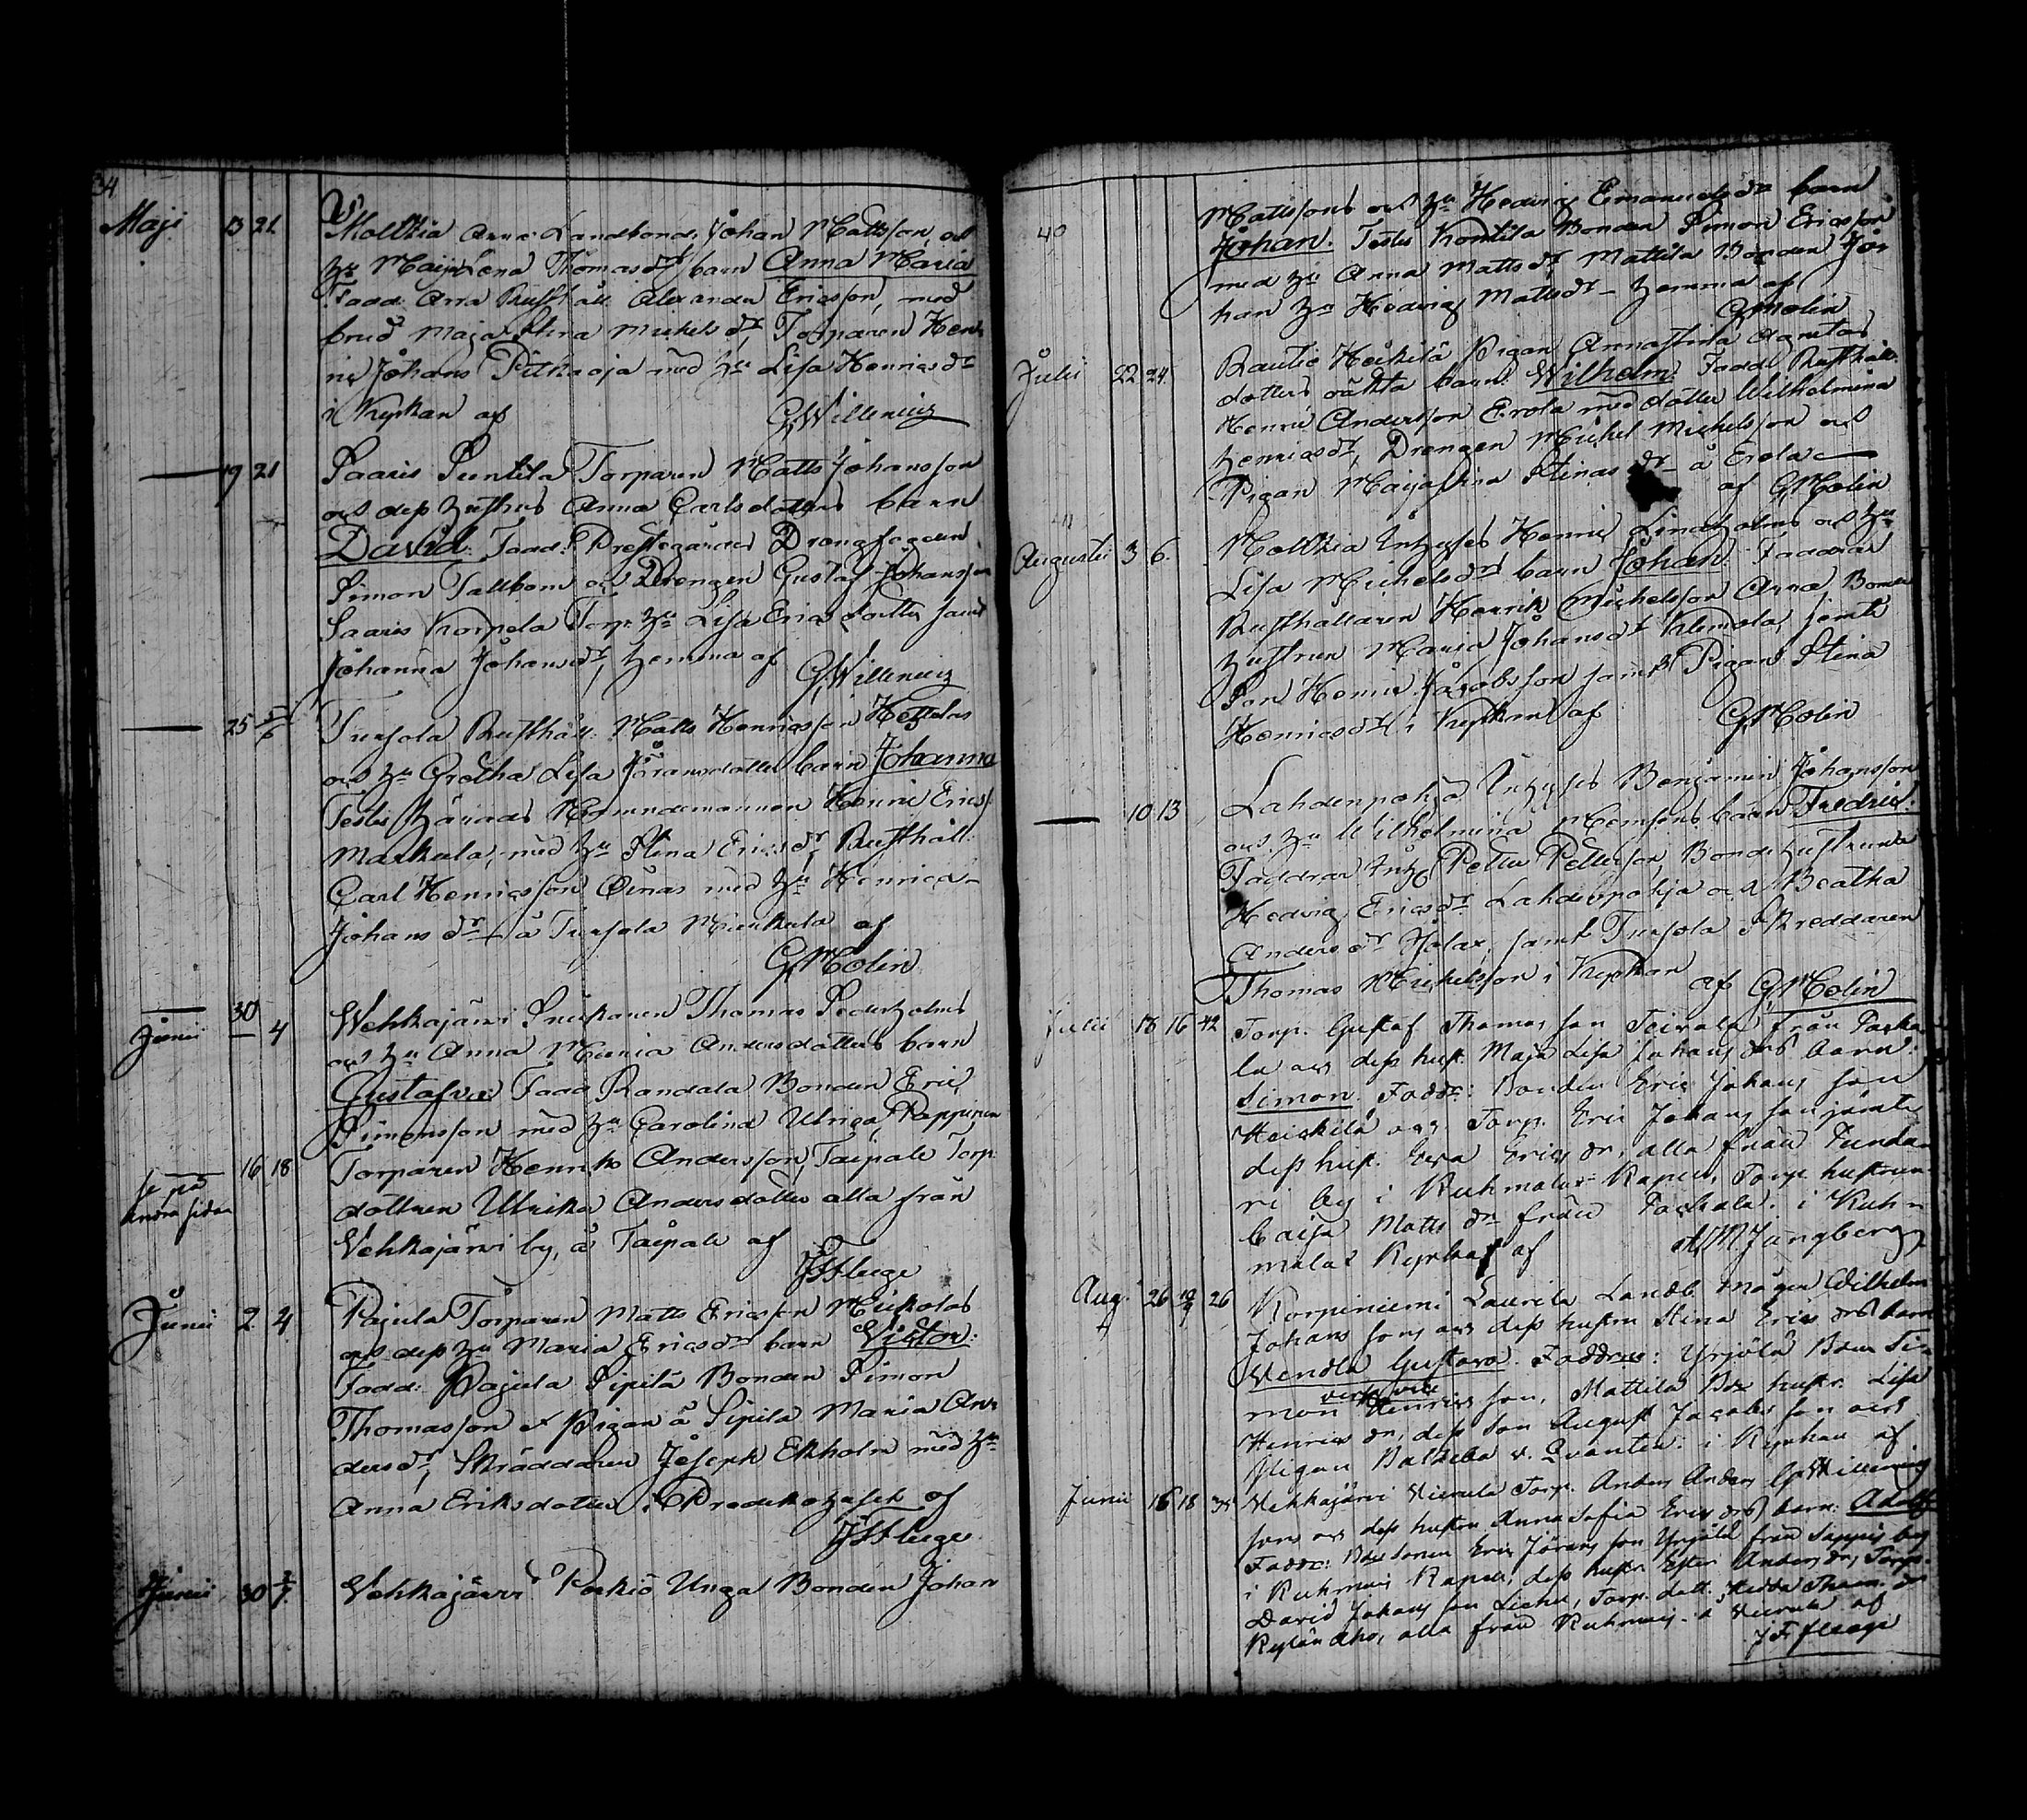 34
Maji 13 21 Moltkia Anni Landbond. Johan Mattsson och
hu Maja Lena Thomasdrs barn Anna Maria
Fadd. Arra Rusthåll. Alexander Ericsson, med
brud Maja Stina Michelsdr, Torparen Hen
ric Johans Pitkäoja med hu Lisa Henricsdr
i Kyrkan af GWillenius
19 21 Saaris Punkila Torparen Matts Johansson
och dess hustrus Anna Carlsdotters barn
David. Fadd: Prestegårdes Drängfogden
Simon Tallbom och Drengen Gustaf Johansson
Saaris Korpela Torp. hu Lisa Ericsdotter samt
Johanna Johansdr, hemma af GWillenius
25 5/6 Tursola Rusthåll. Matts Henricsson
och hu Gretha Lisa Göransdotters barn Johanna
Testes Härads Nämndemannen Henric Erics
Markula, med hu Stina Ericsdr Rusthåll.
Carl Henricsson Ainas med hu Henrica
Johansdr å Tursola Markula af
GMolin
30
Junii 4 Wehkajärvi Thomas Söderholms
och hu Anna Maria Andersdotters barn
Gustafva. Fadd. Randala Bonden Eric
Simonsson med hu Carolina Ulrica Pappinen
16 18 Torparen Henrik Andersson Taipale Torp.
se på
andra sidan
dottren Ulrika Andersdotter alla från
Vehkajärvi by, å Taipale af
JFFluge
Junii 2. 4 Pajula Torparen Matts Ericsson Mickolas
och dess hu Maria Ericsdrs barn Victor:
Fadd: Pajula Sipilä Bonden Simon
Thomasson o Pigan å Sipilä Maria An
dersdr, Skräddaren Joseph Ekholm med hu
Anna Eriksdotter i Predikohuset af
JFFluge
Junii 30 2/7 Vehkajärvi Parkiö Unga Bonden Johan
Mattssons och hu Hedvig Emanuelsdrs barn
40 Johan. Testes Kontila Bonden Simon Ericsson
med hu Anna Mattsdr Mattila Bonden Jo
han hu Hedvig Mattsdr hemma af
GMolin
Julii 22 24. Rautio Heikilä Pigan Anna Stina Agnetas
dotters oäkta barn. Wilhelm. Fadd. Rusthåll.
Henric Andersson Erola med dotter Wilhelmina
Henricsdr, Drengen Michel Michelsson och
Pigan Maija Stina Stinas dr å Erola
af GMolin
41
Augusti 3 6. Moltkia Inhyses Henric Lindholms och hu
Lisa Michelsdrs barn Johan. Faddrar
Rusthållaren Henrik Michelsson Anna Bonde
hustrun Maria Johansdr Klemola, jemte
Son Henric Jacobsson samt Pigan Stina
Henricsdr i Kyrkan af GMolin
10 13 Lahdenpohja Inhyses Benjamin Johansson
och hu Wilhelmina barn Fredric.
Faddrar Inh Petter Pettersson Bonde hustrun
Hedvig Ericsdr Lahdenpohja och Beatha
Andersdr Jalax, samt Tursola Skreddaren
Thomas Michelsson i Kyrkan af GMolin
Julii 13 16 42 Torp. Gustaf Thomas son Teivala från Paska
la och dess hust. Maja Lisa Johans drs barn:
Simon. Faddr: Bonden Eric Johans son
Heickilä och Torp. Eric Johans son jämte
dess hust. Eva Erics dr, alla från Punda
ri by i Kuhmalax Kapell, Torp. hustrun
Caisa Matts dr från Paskala. i Kuh-
malax Kyrka af AMJungberg
Aug. 26 26 Korpiniemi Laurila Landb. mågen Wilhelm
Johans sons och dess hustru Stina Erics drs barn
Wendla Gustava. Faddrar: Yrjölä Bdn Si-
mon Henrics son, Mattila Bde hustr. Lisa
Henrics dr, dess son August Jacobs son och
Pigan Qvantén. i Kyrkan af
GWillenius
Junii 16 18 35 Vehkajärvi Torp. Anders Anders
sons och dess hustru Anna Sofia Erics drs barn: Adolf
Faddr: Bde sonen Eric Jörans son Yrjölä från Sappis by
i Kuhmois Kapell, dess hustr. Ester Anders dr, Torp.
David Johans son, Torp. dott. Hedda Thom. dr
Kylän Aho, alla från Kuhmois. å af
JFFluge